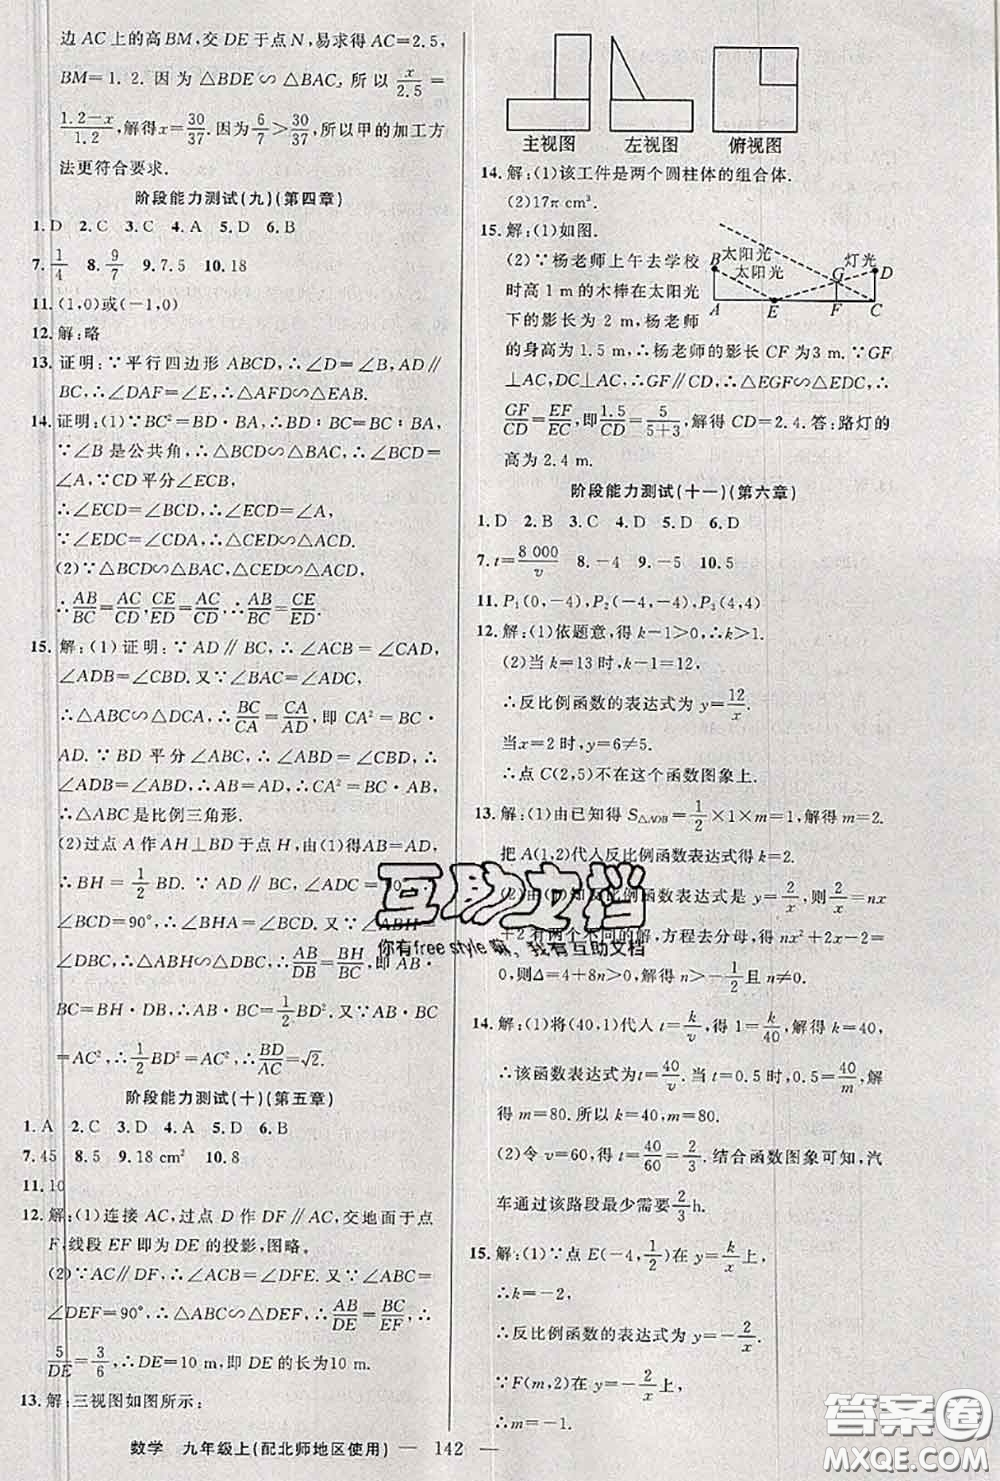 边 AC 上的高 BM,交 DE 于点 N,易求得 AC=2.5,
BM=1.2. 因为 △BDE∽△BAC, 所以 x/2.5 =
(1.2-x)/1.2, 解得 x=30/37. 因为 6/7>30/37, 所以甲的加工方
法更符合要求.
阶段能力测试(九)(第四章)
1.D 2.C 3.C 4.A 5.D 6.B
7. 1/4 8. 9/7 9.7.5 10.18
11.(1,0)或(-1,0)
12.解:略
13.证明:∵平行四边形 ABCD,∴∠D=∠B,AD∥
BC,∴∠DAF=∠E,∴△ADF∽△EAB.
14.证明:(1)∵BC²=BD·BA,∴BD∶BC=BC∶BA,
∵∠B 是公共角,∴△BCD∽△BAC,∴∠BCD=
∠A,∵CD 平分∠ECB,∴∠ECD=∠BCD,
∴∠ECD=∠BCD,∴∠ECD=∠A,
∵∠EDC=∠CDA,∴△ECD∽△EDC.
(2)∵△BCD∽△BAC,△ECD∽△CAD,
∴AB/BC=AC/CD,CE/ED=AC/CD,∴AB/BC=CE/ED.
15.解:(1)证明:∵AD∥BC,∴∠ACB=∠CAD,
∠ADB=∠DBC.又∵∠BAC=∠ADC,
∴△ABC∽△DCA,∴BC/CA=CA/AD,即 CA²=BC·
AD.∵BD 平分∠ABC,∴∠ABD=∠CBD,∴
∠ADB=∠ABD,∴AB=AD,∴CA²=BC·AB,
∴△ABC是比例三角形.
(2)过点 A 作 AH⊥BD 于点 H,由(1)得AB=AD,
∴BH=1/2BD.∵AD∥BC,∠ADC=90°,∴
∠BCD=90°,∴∠BHA=∠BCD=90°.又∵∠ABH
=∠DBC,∴△ABH∽△DBC,∴AB/DB=BH/BC,即 AB·
BC=BH·DB,∴AB·BC=1/2BD².又∵AB·BC
=AC²,∴1/2BD²=AC²,∴BD/AC=√2.
阶段能力测试(十)(第五章)
1.A 2.C 3.D 4.A 5.D 6.B
7.45 8.5 9.18 cm² 10.8
11.10
12.解:(1)连接 AC,过点 D 作 DF∥AC,交地面于点
F,线段 EF 即为 DE 的投影,图略.
(2)∵AC∥DF,∴∠ACB=∠DFE.又∵∠ABC=
∠DEF=90°,∴△ABC∽△DEF,∴AB/DE=BC/EF,∴
5/DE=3/6,∴DE=10 m,即 DE 的长为10 m.
13.解:三视图如图所示:
主视图 左视图 俯视图
14.解:(1)该工件是两个圆柱体的组合体.
(2)17π cm³.
15.解:(1)如图.
(2)∵杨老师上午去学校
时高 1 m 的木棒在太阳光
下的影长为 2 m,杨老师
的身高为 1.5 m,∴杨老师的影长 CF 为3 m.∵GF
⊥AC,DC⊥AC,∴GF∥CD,∴△EGF∽△EDC,∴
GF/CD=EF/EC,即1.5/CD=5/(5+3),解得 CD=2.4.答:路灯的
高为 2.4 m.
太阳光 太阳光 灯光 B G D A E F C
阶段能力测试(十一)(第六章)
1.D 2.B 3.C 4.D 5.D 6.D
7.t=8 000/v 8.-4 9.-5 10.5
11.P₁(0,-4),P₂(-4,-4),P₃(4,4)
12.解:(1)依题意,得 k-1>0,∴k>1.
(2)当 k=13 时,k-1=12,
∴反比例函数的表达式为 y=12/x.
当x=2 时,y=6≠5.
∴点 C(2,5)不在这个函数图象上.
13.解:(1)由已知得 S△AOB=1/2×1×m=1,解得 m=2.
把 A(1,2)代入反比例函数表达式得 k=2.
(2)由(1)知反比例函数表达式是 y=2/x,则2/x=nx
+2有两个不同的解,方程去分母,得 nx²+2x-2=
0,则Δ=4+8n>0,解得 n>-1/2且 n≠0.
14.解:(1)将(40,1)代入 t=k/v,得 1=k/40,解得 k=40,
∴该函数表达式为 t=40/v,当 t=0.5 时,0.5=40/m,解
得 m=80.所以 k=40,m=80.
(2)令 v=60,得 t=40/60=2/3.结合函数图象可知,汽
车通过该路段最少需要2/3h.
15.解:(1)∵点 E(-4,1/2)在 y=k/x上,
∴k=-2,
∴反比例函数的表达式为 y=-2/x.
∵F(m,2)在 y=-2/x上,
∴m=-1.
互助文档
你有free style嘛,我有互助文档
答案圈
MXQE.COM
数学 九年级上(配北师地区使用) — 142 —